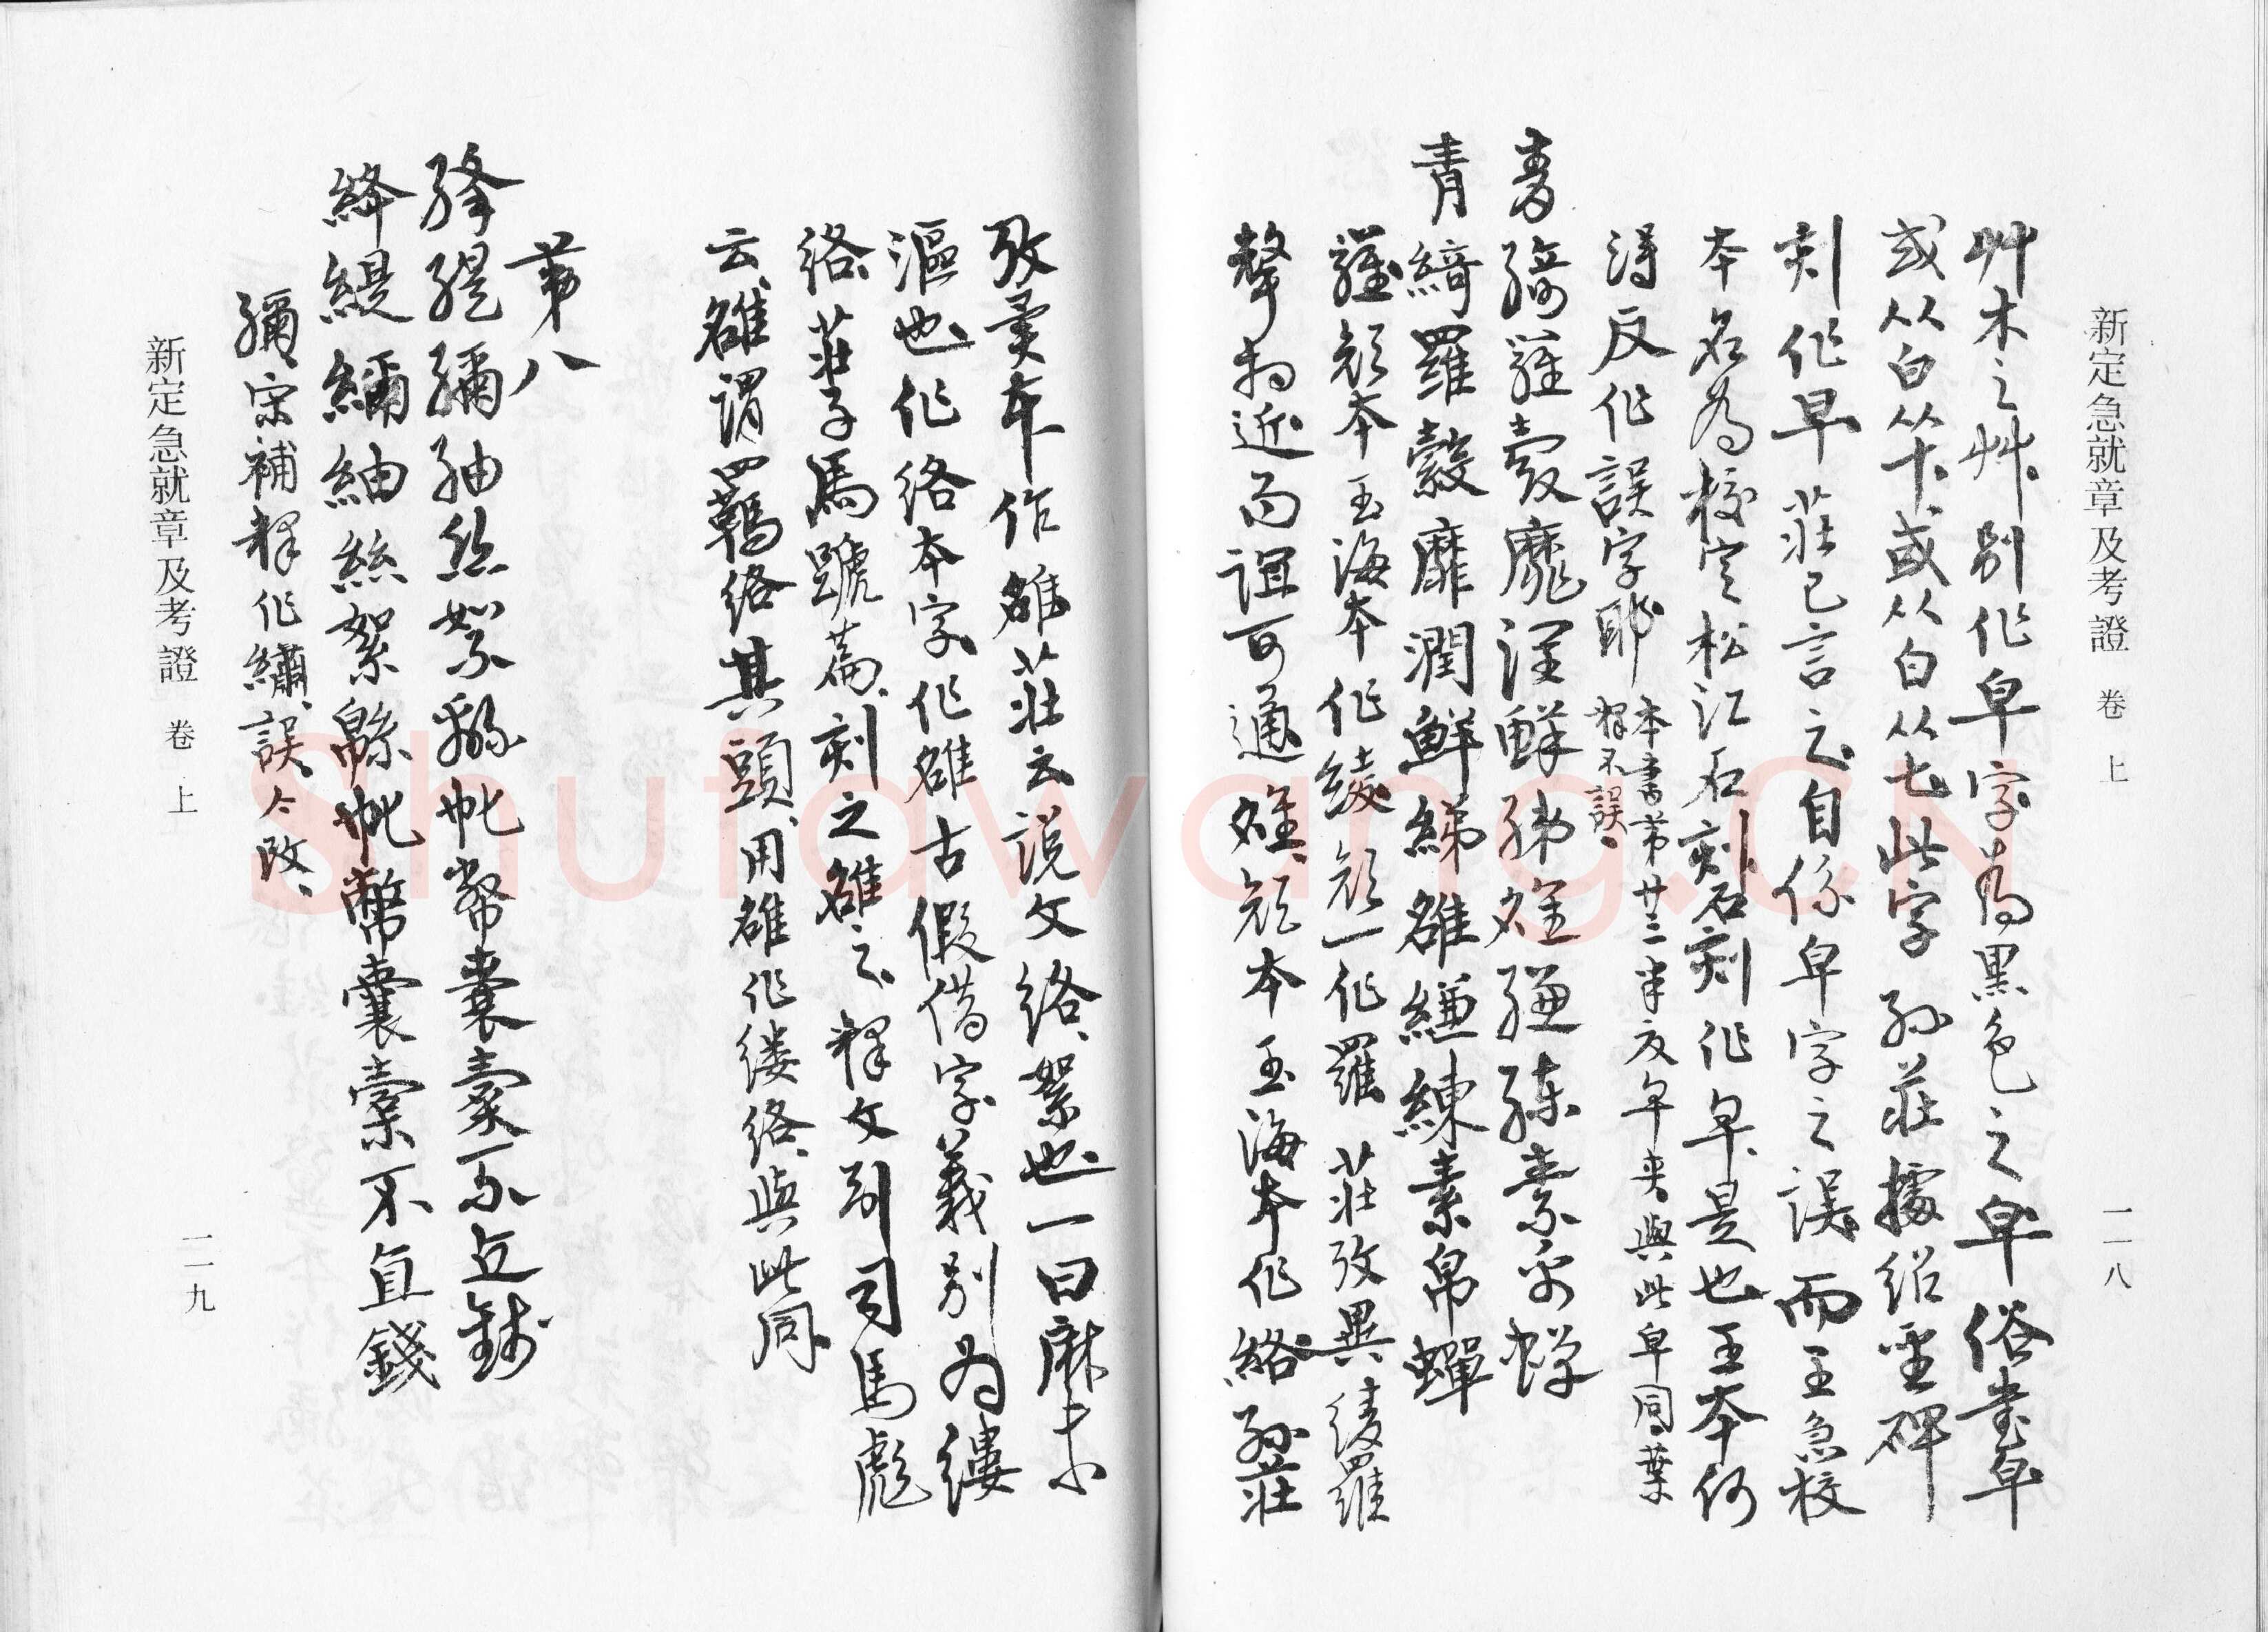 新定急就章及考證 卷上 一一八
艸木之艸、別作皁字、為黑色之皁、俗書皁
或从白从十、或从白从七、此字孫莊據紹聖碑
刻作早、莊已言之、自係皁字之誤、而王急校
本名為校定松江石刻、石刻作早、早、是也、王本何
得反作誤字耶 本書第廿三 皁同、葉
釋不誤、
青綺羅縠靡潤鮮綈雒縑練素帛蟬
青綺羅縠靡潤鮮綈雒縑練素帛蟬
羅、顏本玉海本作綾、顏一作羅、莊攷異、綾羅
聲相近而誼可通、雒、顏本玉海本作絡、孫莊
攷異本作雒、莊云、說文絡、絮也、一曰麻未
漚也、作絡本字、作雒古假借字、義別為縷
絡、莊子馬蹏篇、刻之雒之、釋文引司馬彪
云、雒謂羈絡其頭、用雒作縷絡、與此同
第八
絳緹繡紬絲絮緜㠲幣囊橐不直錢
絳緹繡紬絲絮緜㠲幣囊橐不直錢
宋補釋作繡、誤、今改、
新定急就章及考證 卷上 一一九
Shufawang.CN